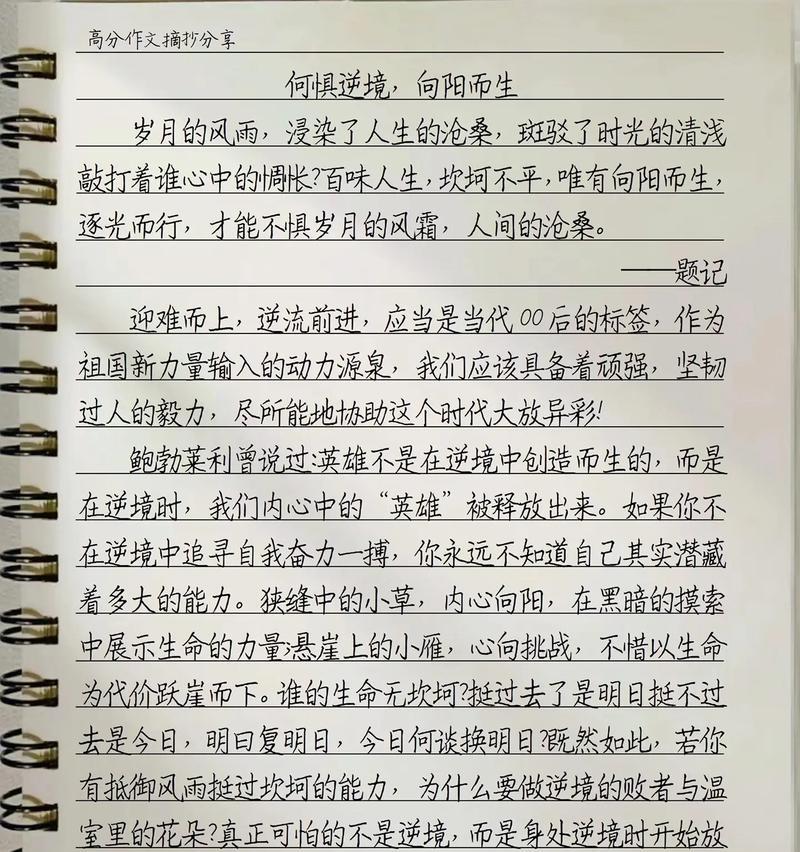 高分作文摘抄分享
何惧逆境，向阳而生
岁月的风雨，浸染了人生的沧桑，斑驳了时光的清浅
敲打着谁心中的惆怅?百味人生，坎坷不平，唯有向阳而生，
逐光而行，才能不惧岁月的风霜，人间的沧桑。
——题记
迎难而上，逆流前进，应当是当代00后的标签，作为
祖国新力量输入的动力源泉，我们应该具备着顽强，坚韧
过人的毅力，尽所能地协助这个时代大放异彩!
鲍勃莱利曾说过:英雄不是在逆境中创造而生的，而是
在逆境时，我们内心中的“英雄”被释放出来。如果你不
在逆境中追寻自我奋力一搏，你永远不知道自己其实潜藏
着多大的能力。狭缝中的小草，内心向阳，在黑暗的摸索
中展示生命的力量;悬崖上的小雁，心向挑战，不惜以生命
为代价跃崖而下。谁的生命无坎坷?挺过去了是明日挺不过
去是今日，明曰复明日，今日何谈换明日?既然如此，若你
有抵御风雨挺过坎坷的能力，为什么要做逆境的败者与温
室里的花朵?真正可怕的不是逆境，而是身处逆境时开始放